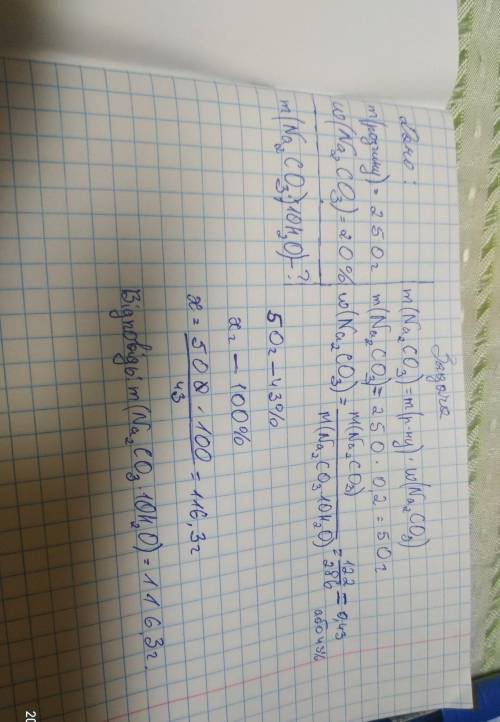 Задача
Дано:
m(розчину) = 250г
w(Na₂CO₃) = 20%
m(Na₂CO₃·10H₂O) - ?
m(Na₂CO₃) = m(р-ну) · w(Na₂CO₃)
m(Na₂CO₃) = 250 · 02 = 50г
w(Na₂CO₃) = m(Na₂CO₃) / m(Na₂CO₃·10H₂O) = 122/286 = 0,43
або 43%
50г - 43%
xг - 100%
x = 50г · 100 / 43 = 116,3г
Відповідь: m(Na₂CO₃·10H₂O) = 116,3г.
20